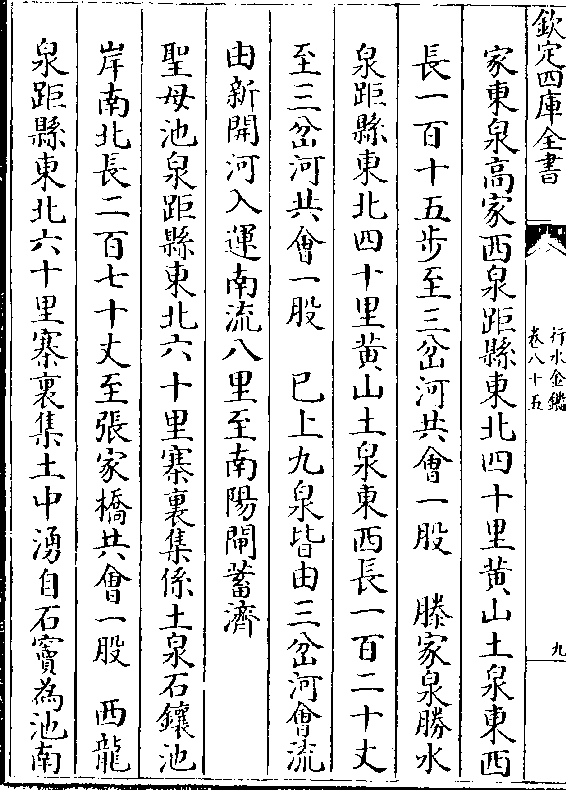 欽定四庫全書
行水金鑑
卷八十五
九
家東泉高家西泉距縣東北四十里黄山土泉東西
長一百十五步至三岔河共會一股　滕家泉勝水
泉距縣東北四十里黄山土泉東西長一百二十丈
至三岔河共會一股　已上九泉皆由三岔河會流
由新開河入運南流八里至南陽閘蓄濟
聖母池泉距縣東北六十里寨裏集係土泉石鑲池
岸南北長二百七十丈至張家橋共會一股　西龍
泉距縣東北六十里寨裏集土中湧自石竇為池南